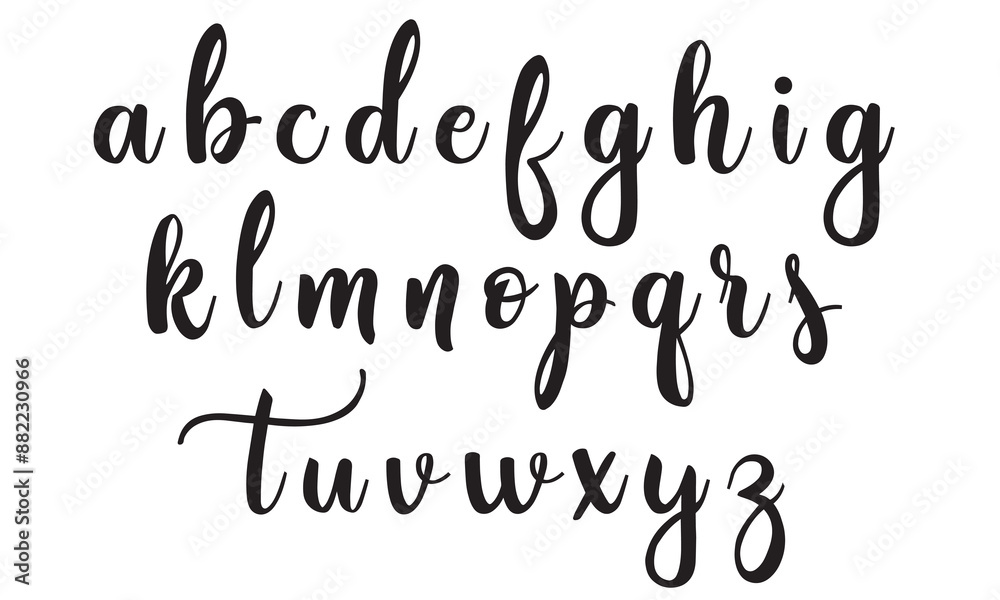 abcdefghig
klmnopqrs
tuvwxyz
Adobe Stock | #882230966